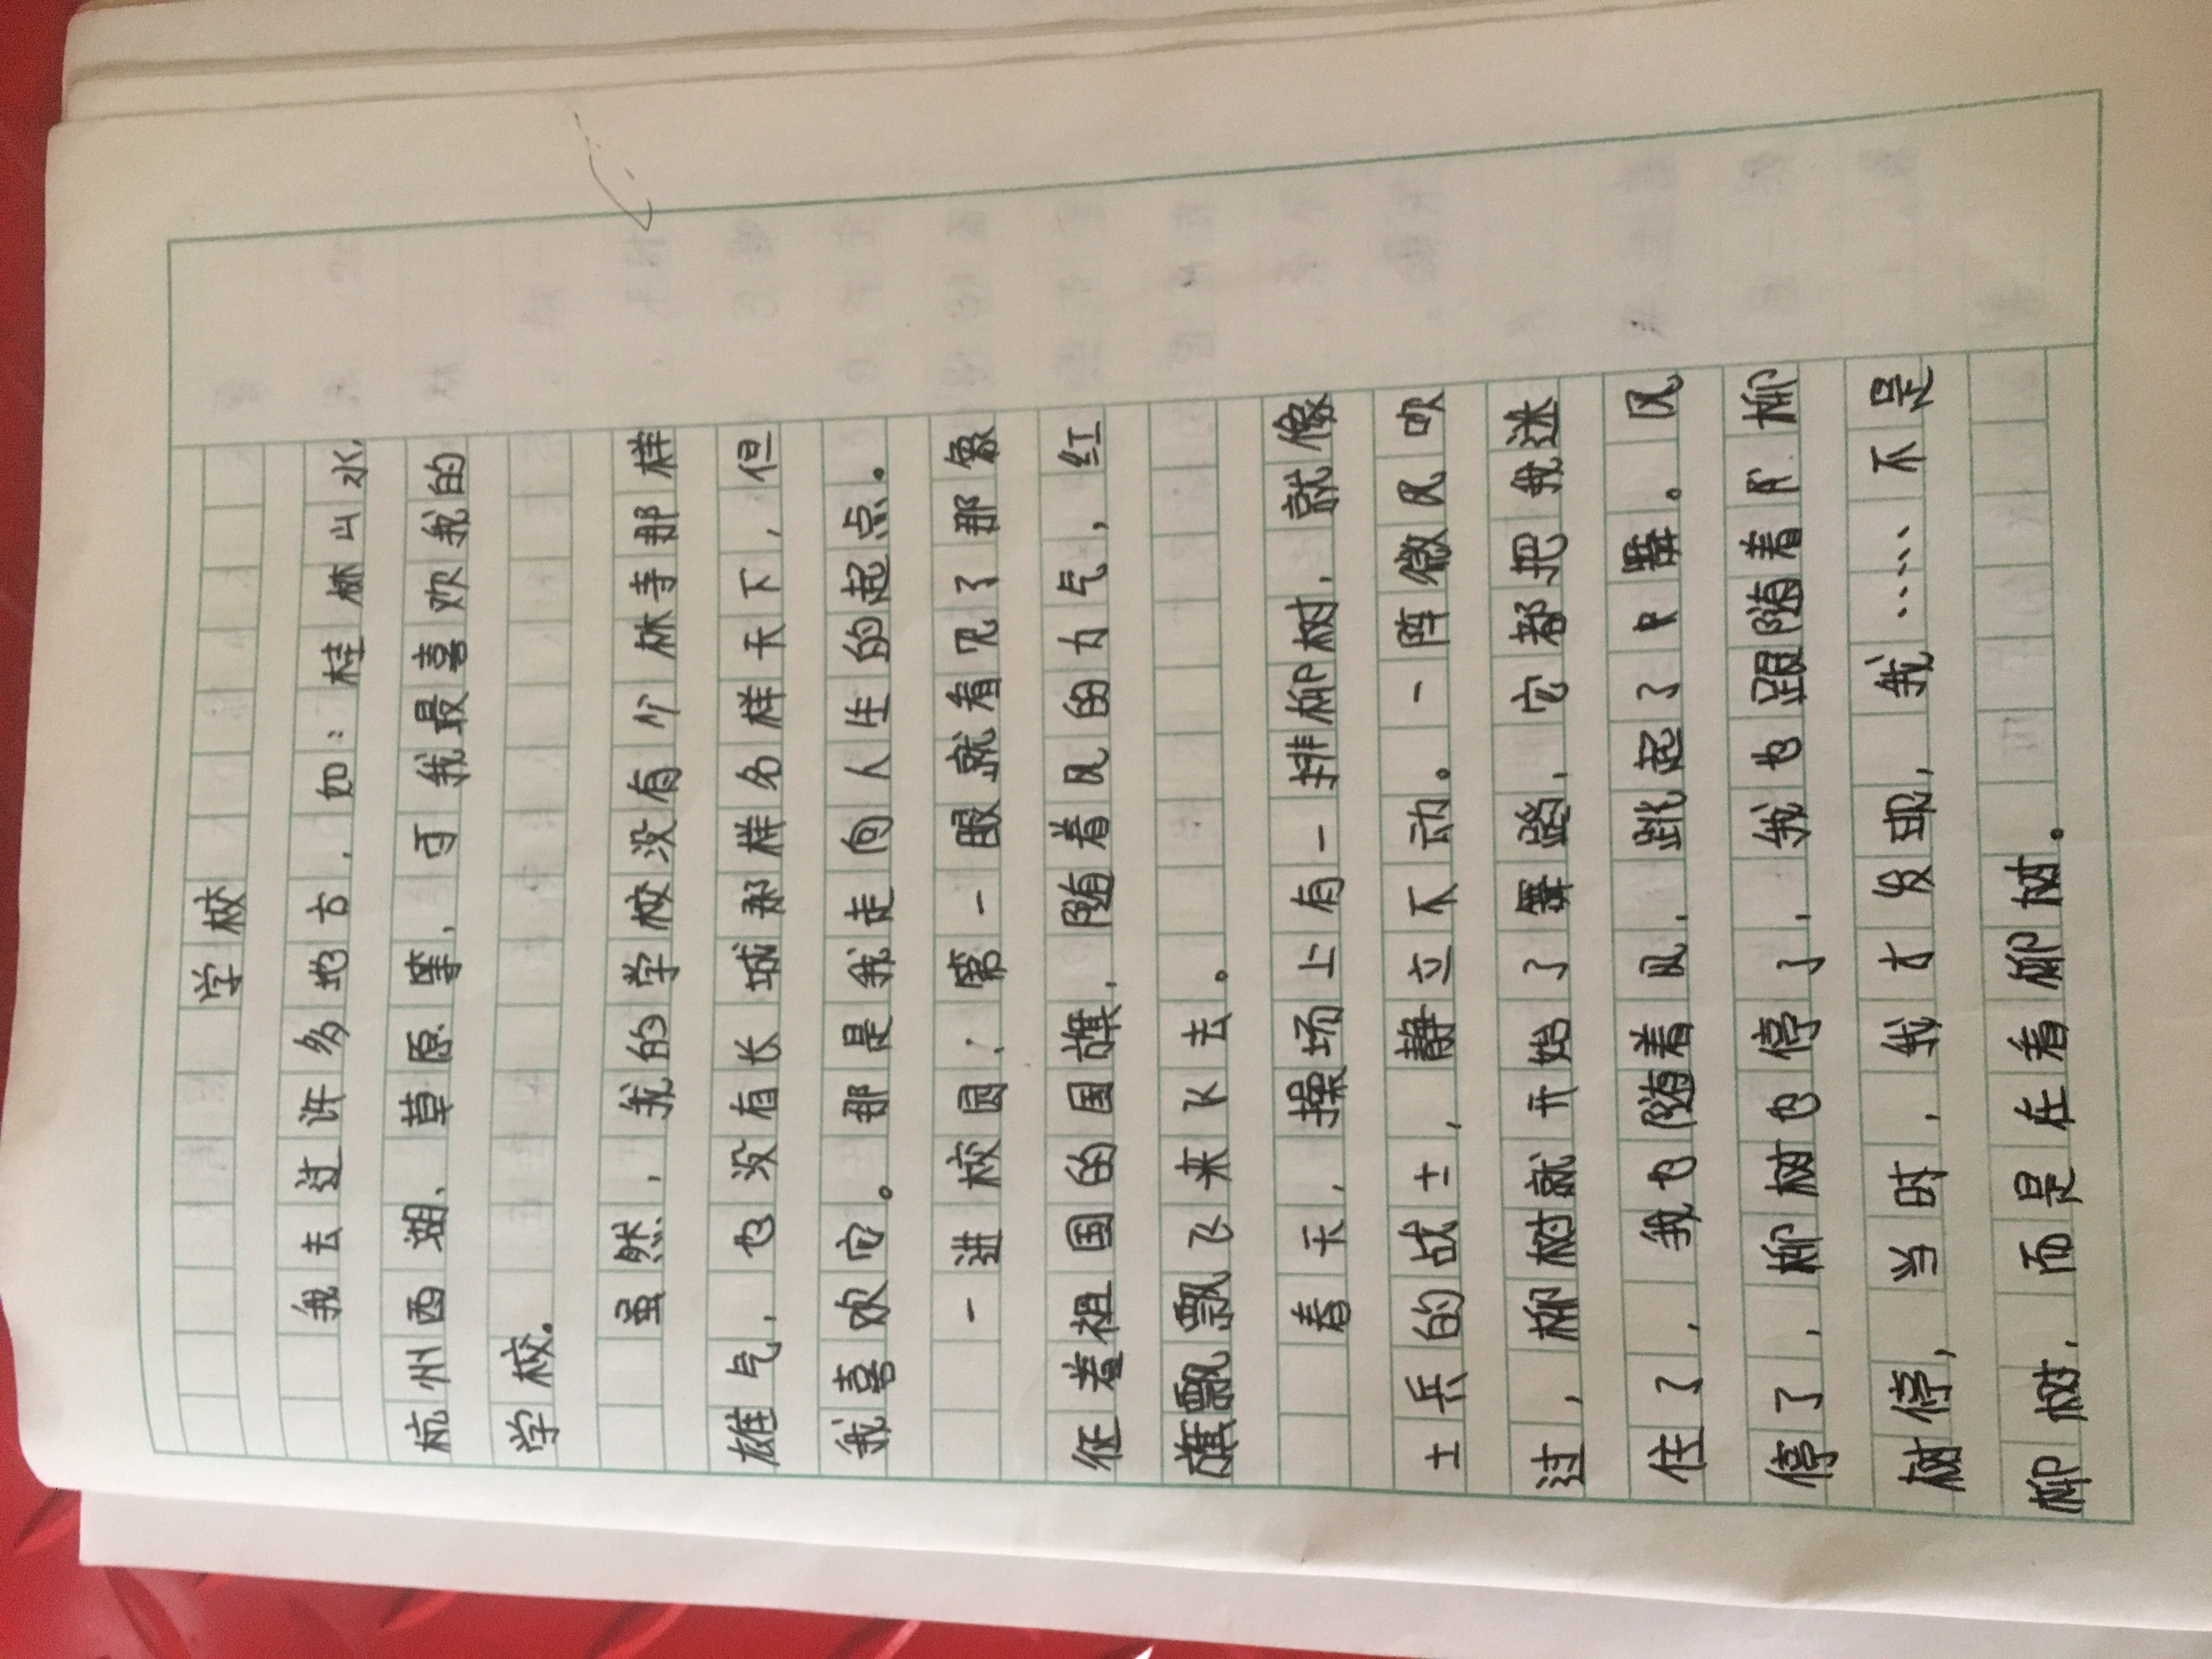 学校
我去过许多地方，如：桂林山水，
杭州西湖、草原等，可我最喜欢我的
学校。
虽然，我的学校没有少林寺那样
雄气，也没有长城那样名样天下，但
我喜欢它。那是我走向人生的起点。
一进校园，第一眼就看见了那象
征着祖国的国旗，随着风的力气，红
旗飘飘飞来飞去。
春天，操场上有一排柳树，就像
士兵的战士，静立不动。一阵微风吹
过，柳树就开始了舞蹈，它都把我迷
住了，我也随着风，跳起了中舞。风
停了，柳树也停了，我也跟随着柳
树停，当时，我才发现，我……不是
柳树，而是在看柳树。